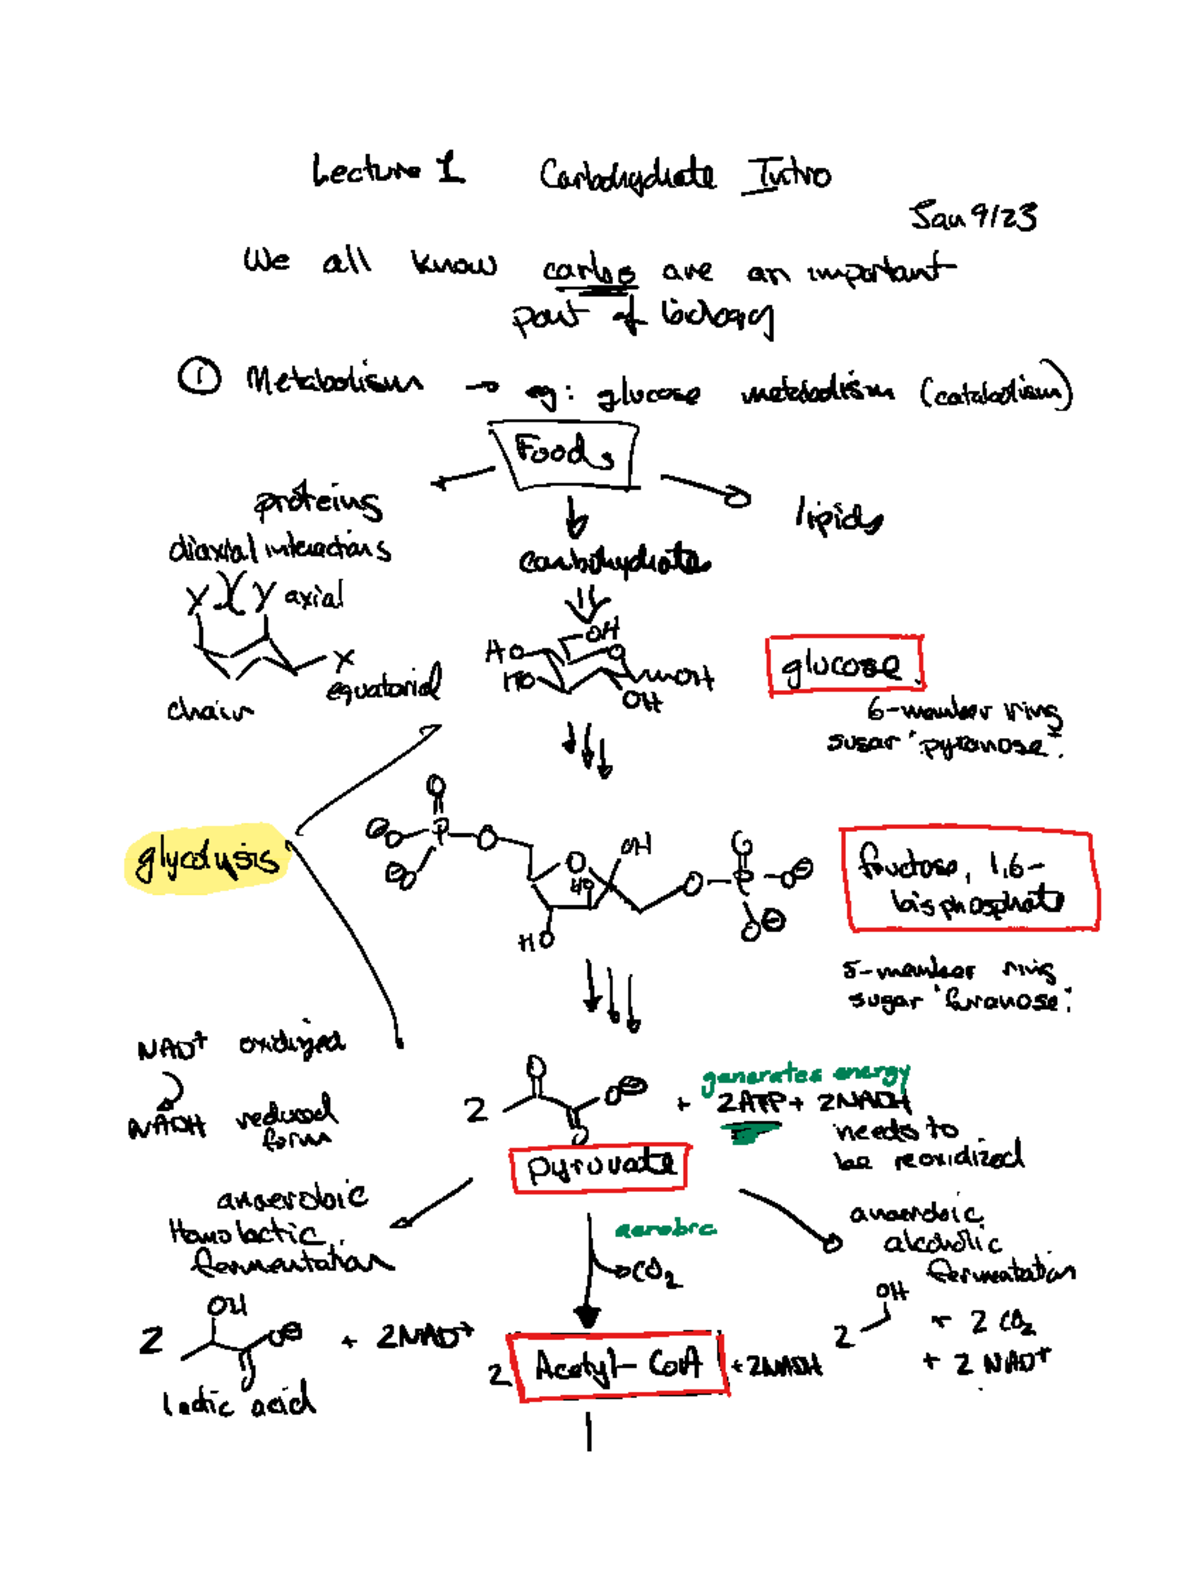 Lecture 1 Carbohydrate Intro
Jan 9/23
We all know carbs are an important
part of biology
① Metabolism → eg: glucose metabolism (catabolism)
Foods
proteins
lipids
diaxial interactions
carbohydrates
X Y axial
OH
HO O
HO OH
OH
X
equatorial
chair
glucose
6-member ring
sugar "pyranose".
glycolysis
O
⊖O P O
⊖O
O OH
HO
HO
O
O P O⊖
O⊖
fructose, 1,6-
bisphosphate
5-member ring
sugar "furanose".
NAD⁺ oxidized
NADH reduced
form
generates energy
2 O O⊖ + 2ATP + 2NADH
O
needs to
be reoxidized
pyruvate
anaerobic
Homolactic
fermentation
aerobic
CO₂
anaerobic
alcoholic
fermentation
OH
2 O⊖ + 2NAD⁺
O
lactic acid
2 Acetyl-CoA + 2NADH
OH
2 + 2 CO₂
+ 2 NAD⁺